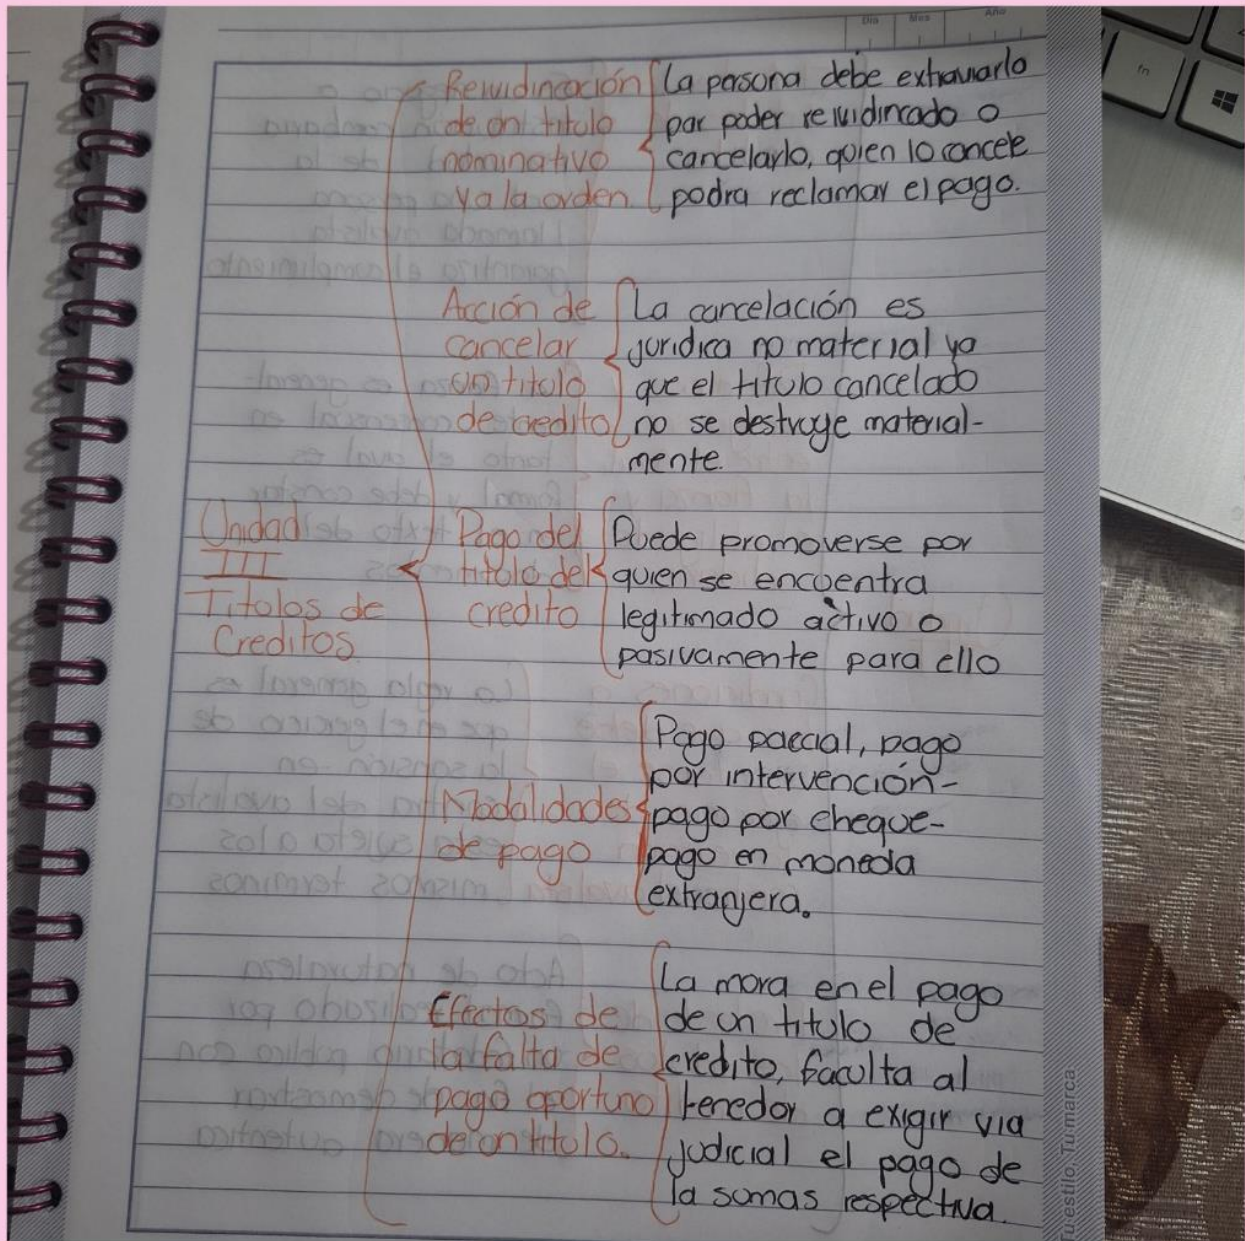 Dia Mes Año
fn
Reividincación
de un titulo
nominativo
y a la orden
La persona debe extraviarlo
par poder reividincado o
cancelarlo, quien lo concele
podra reclamar el pago.
Acción de
cancelar
un titulo
de credito
La cancelación es
juridica no material ya
que el titulo cancelado
no se destruye material-
mente.
Unidad
III
Titulos de
Creditos
Pago del
titulo del
credito
Puede promoverse por
quien se encuentra
legitimado activo o
pasivamente para ello
Modalidades
de pago
Pago parcial, pago
por intervención-
pago por cheque-
pago en moneda
extranjera.
Efectos de
la falta de
pago oportuno
de un titulo.
La mora en el pago
de un titulo de
credito, faculta al
tenedor a exigir via
judicial el pago de
la somas respectiva.
Tu estilo, Tu marca